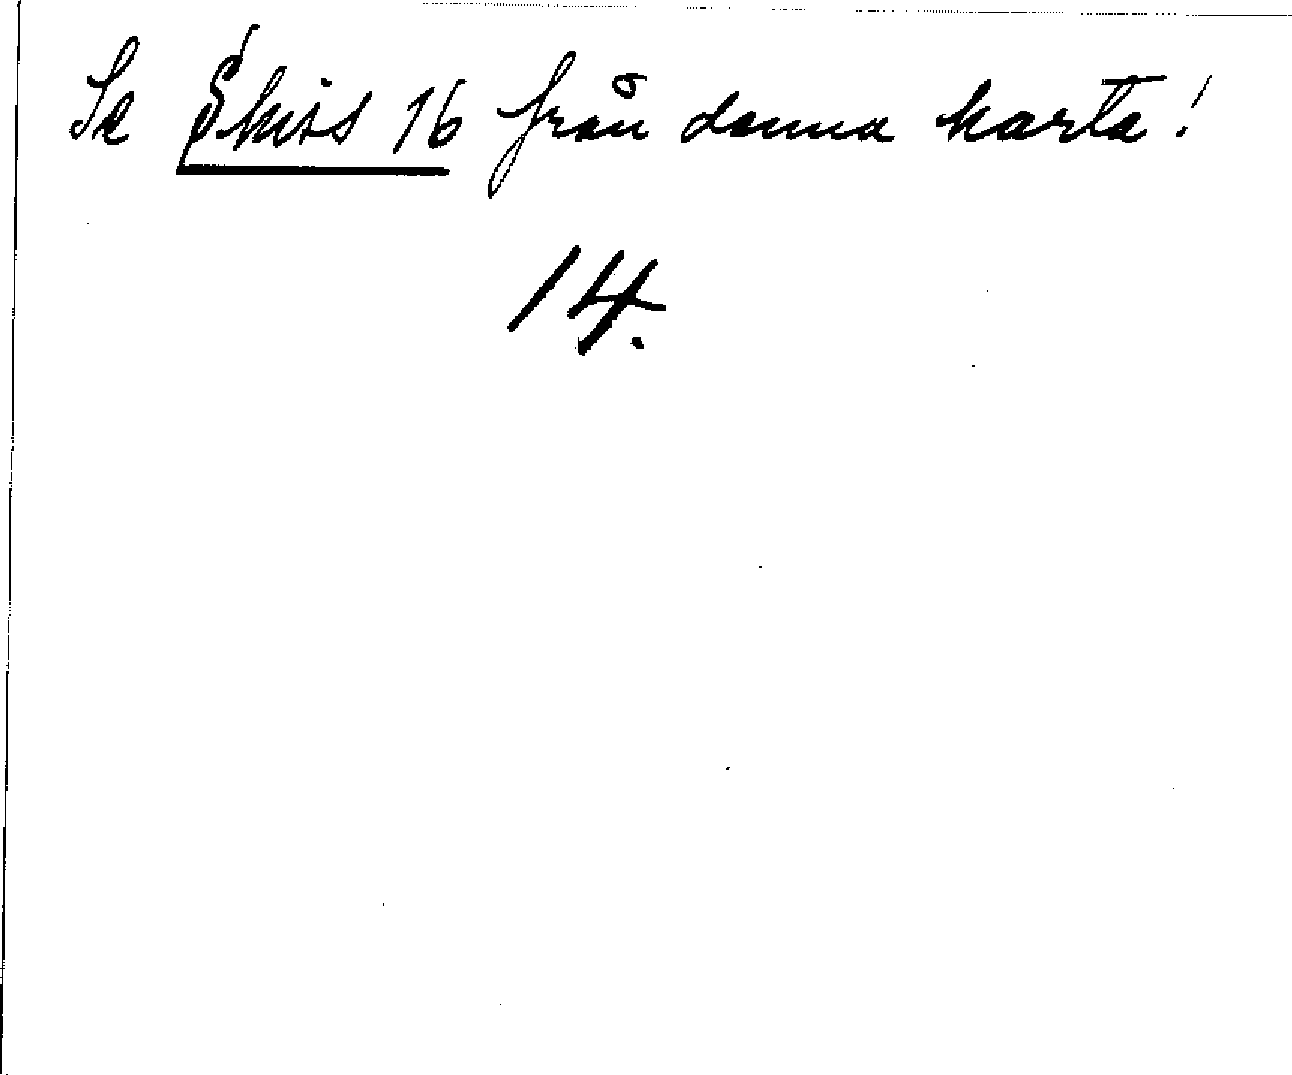 Se Skiss 16 från denna karta!
14.